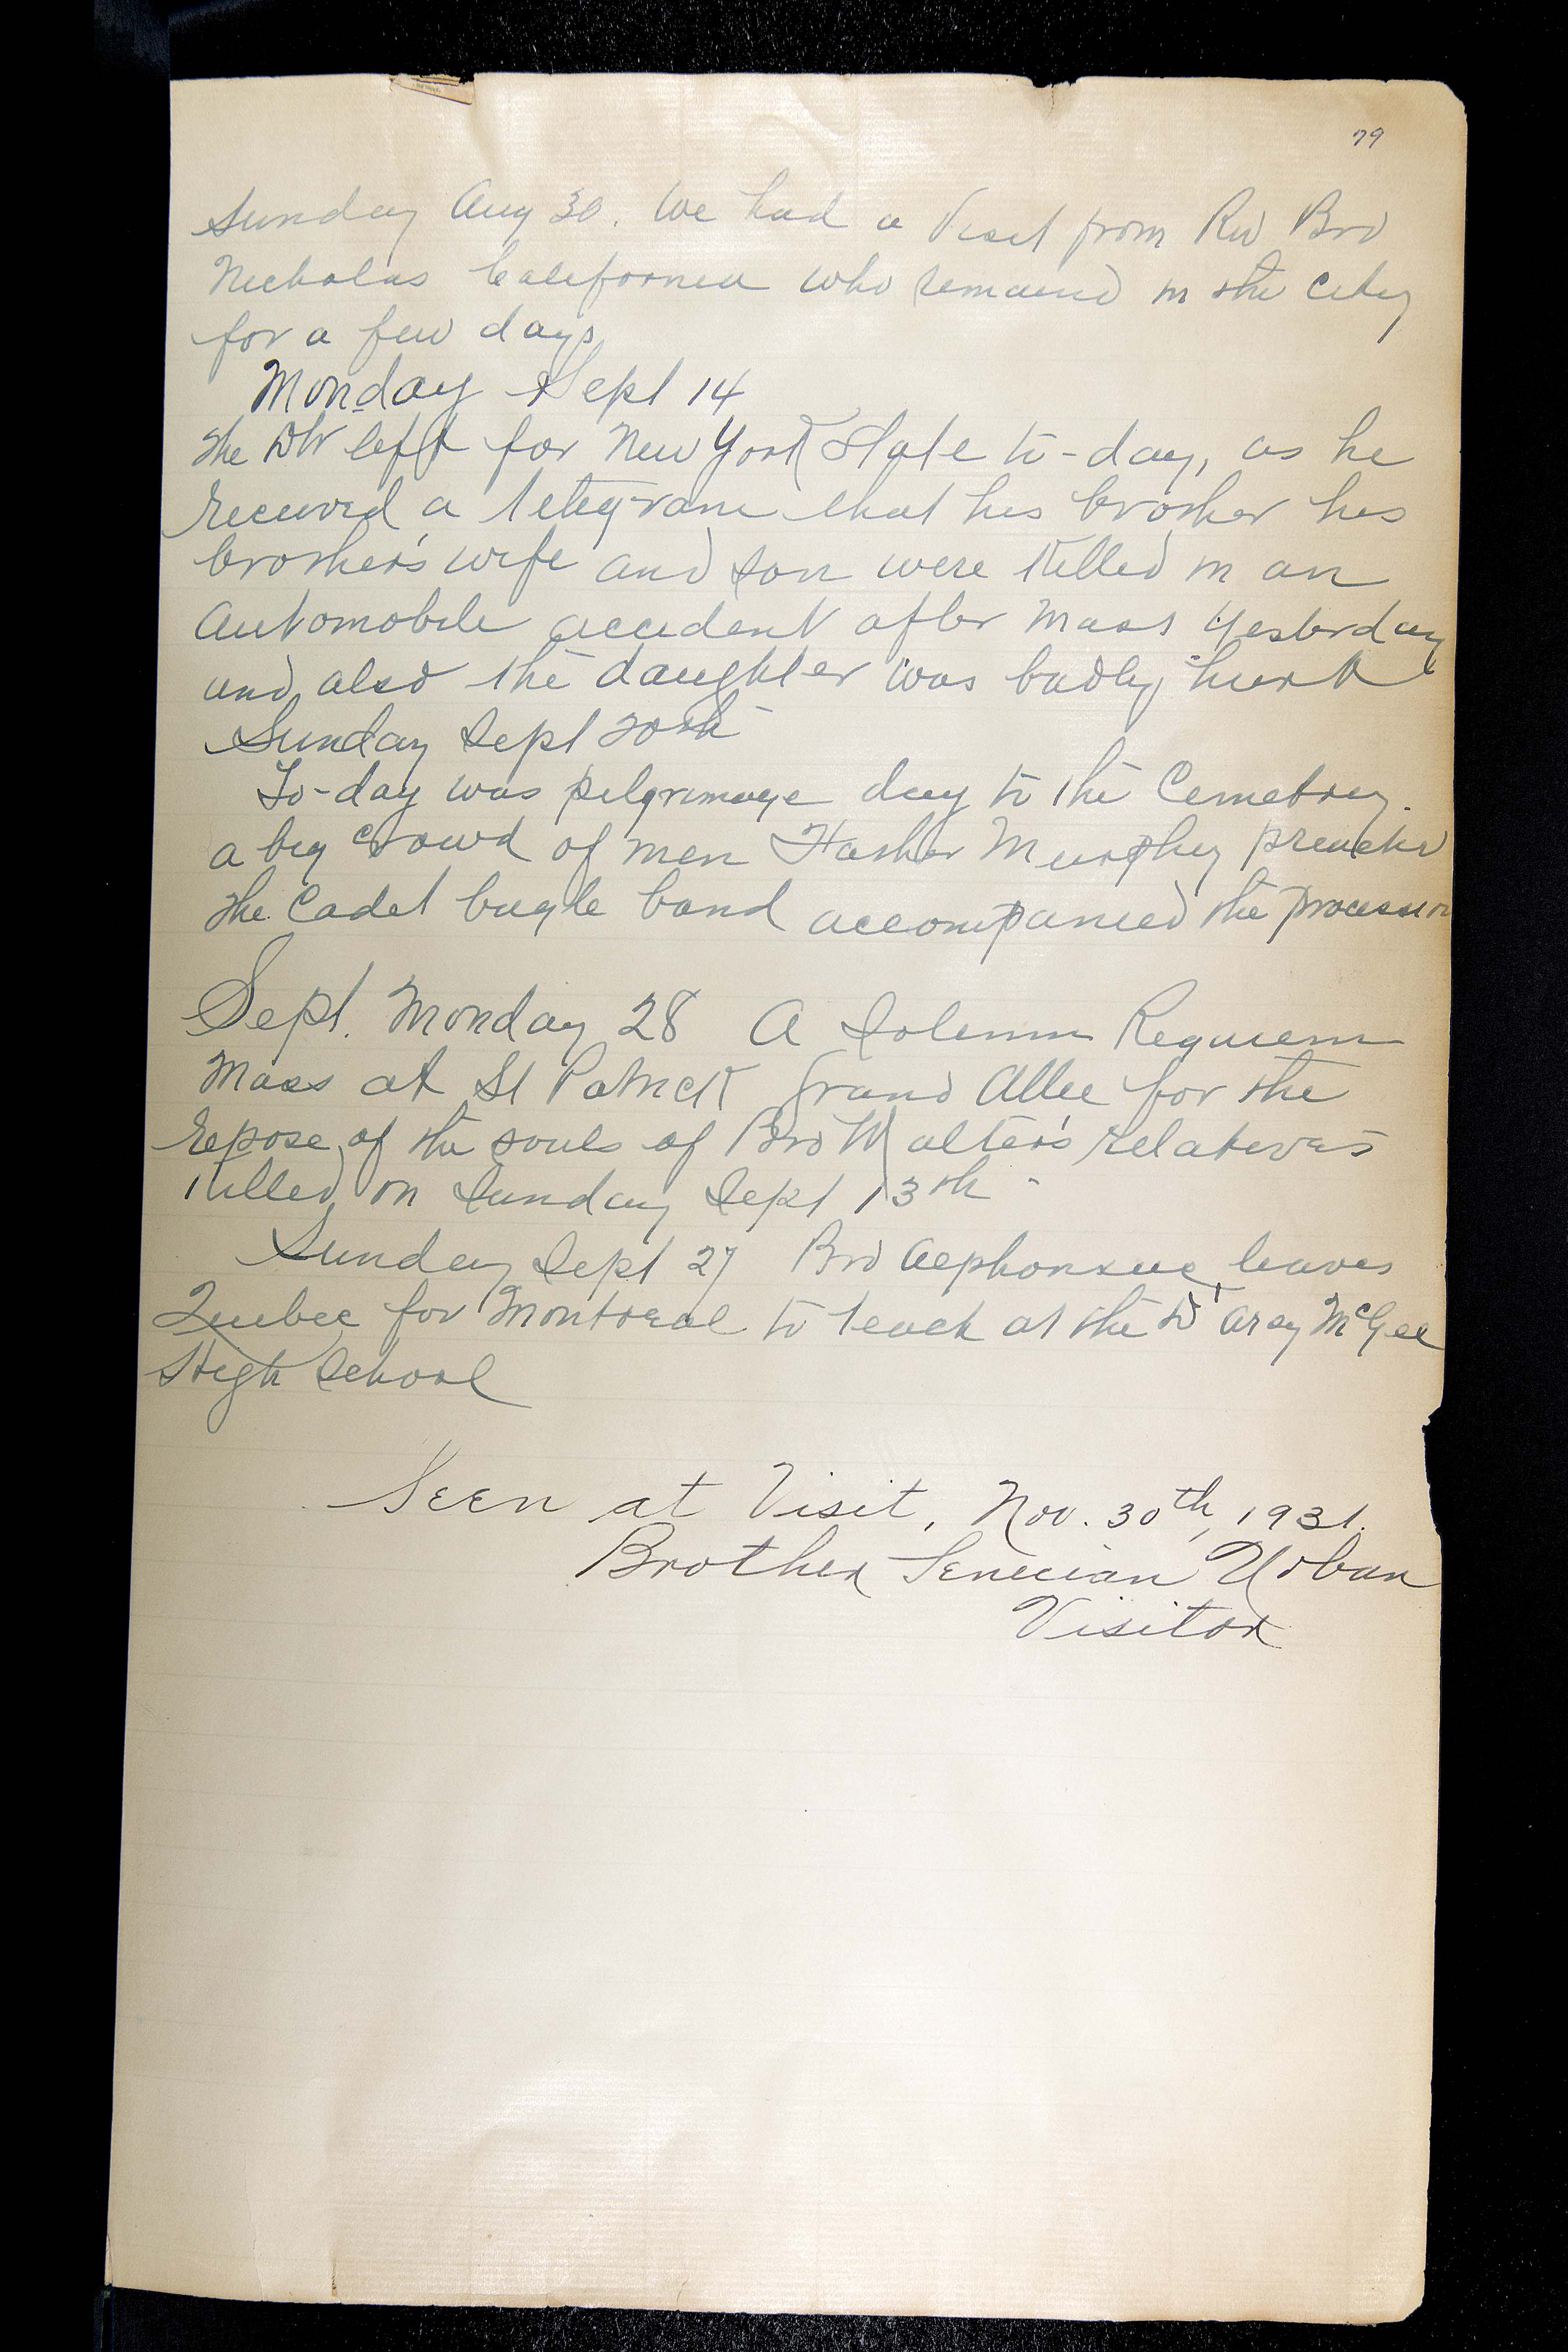 79
Sunday Aug 30. We had a visit from Rev Bro
Nicholas California who remained in the city
for a few days
Monday Sept 14
The left for New York State to-day, as he
received a telegram that his brother his
brother's wife and son were killed in an
automobile accident after Mass yesterday
and also the daughter was badly hurt
Sunday Sept 20th
To-day was pilgrimage day to the Cemetery.
a big crowd of men Father Murphy preached
The Cadet bugle band accompanied the procession
Sept. Monday 28 A Solemn Requiem
Mass at St Patrick Grand Allee for the
repose of the souls of Bro Walter's relatives
killed on Sunday Sept 13th.
Sunday Sept 27 Bro Alphonsus leaves
Quebec for Montreal to teach at the D'Arcy McGee
High School
Seen at Visit, Nov. 30th, 1931.
Brother Urban
Visitor